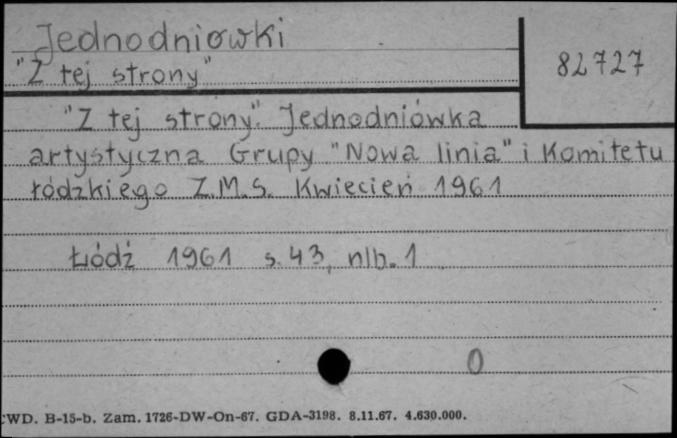 Jednodniowki
82727
"Z tej strony"
"Z tej strony". Jednodniówka
artystyczna Grupy "Nowa linia" i Komitetu
łódzkiego Z.M.S. Kwiecień 1961
Łódź 1961 s. 43, nlb. 1
0
WD. B-15-b. Zam. 1726-DW-On-67. GDA-3198. 8.11.67. 4.630.000.